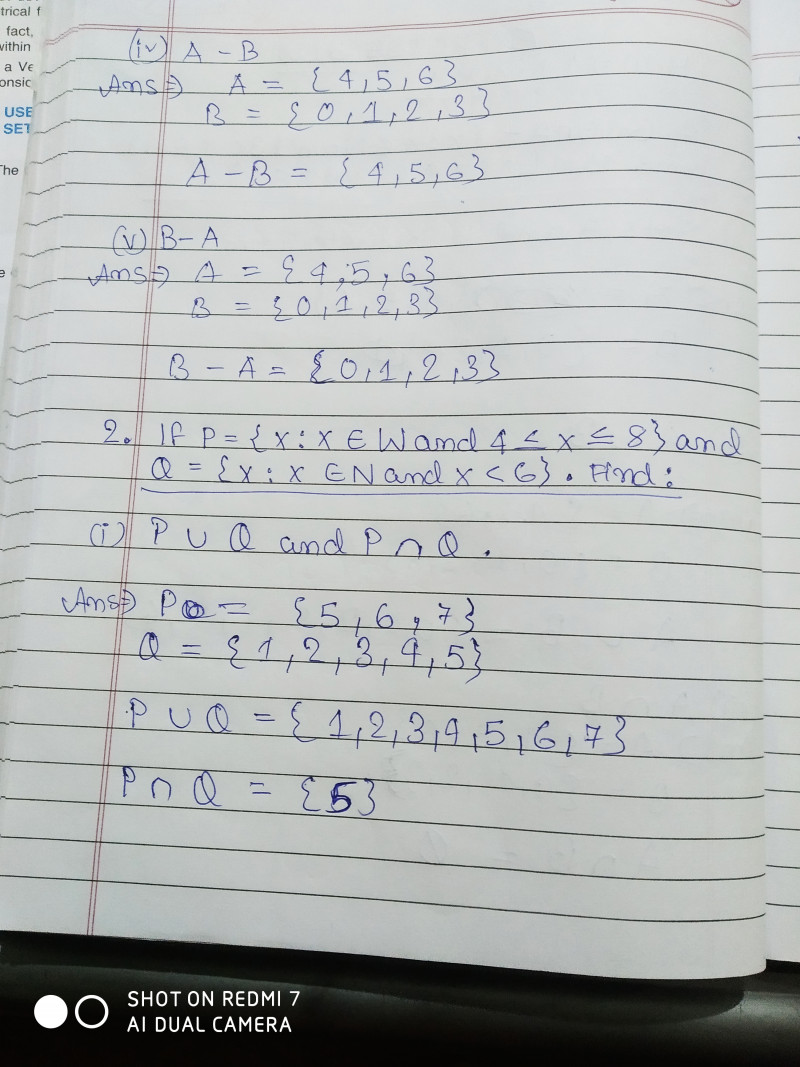 trical f
fact,
within
a Ve
onsic
USE
SET
The
(iv) A - B
Ans⇒ A = {4,5,6}
B = {0,1,2,3}
A - B = {4,5,6}
(v) B-A
Ans⇒ A = {4,5,6}
B = {0,1,2,3}
B - A = {0,1,2,3}
2. If P = {x : x ∈ W and 4 ≤ x ≤ 8} and
Q = {x : x ∈ N and x < 6}. Find :
(i) P ∪ Q and P ∩ Q .
Ans⇒ P = {5,6,7}
Q = {1,2,3,4,5}
P ∪ Q = {1,2,3,4,5,6,7}
P ∩ Q = {5}
SHOT ON REDMI 7
AI DUAL CAMERA